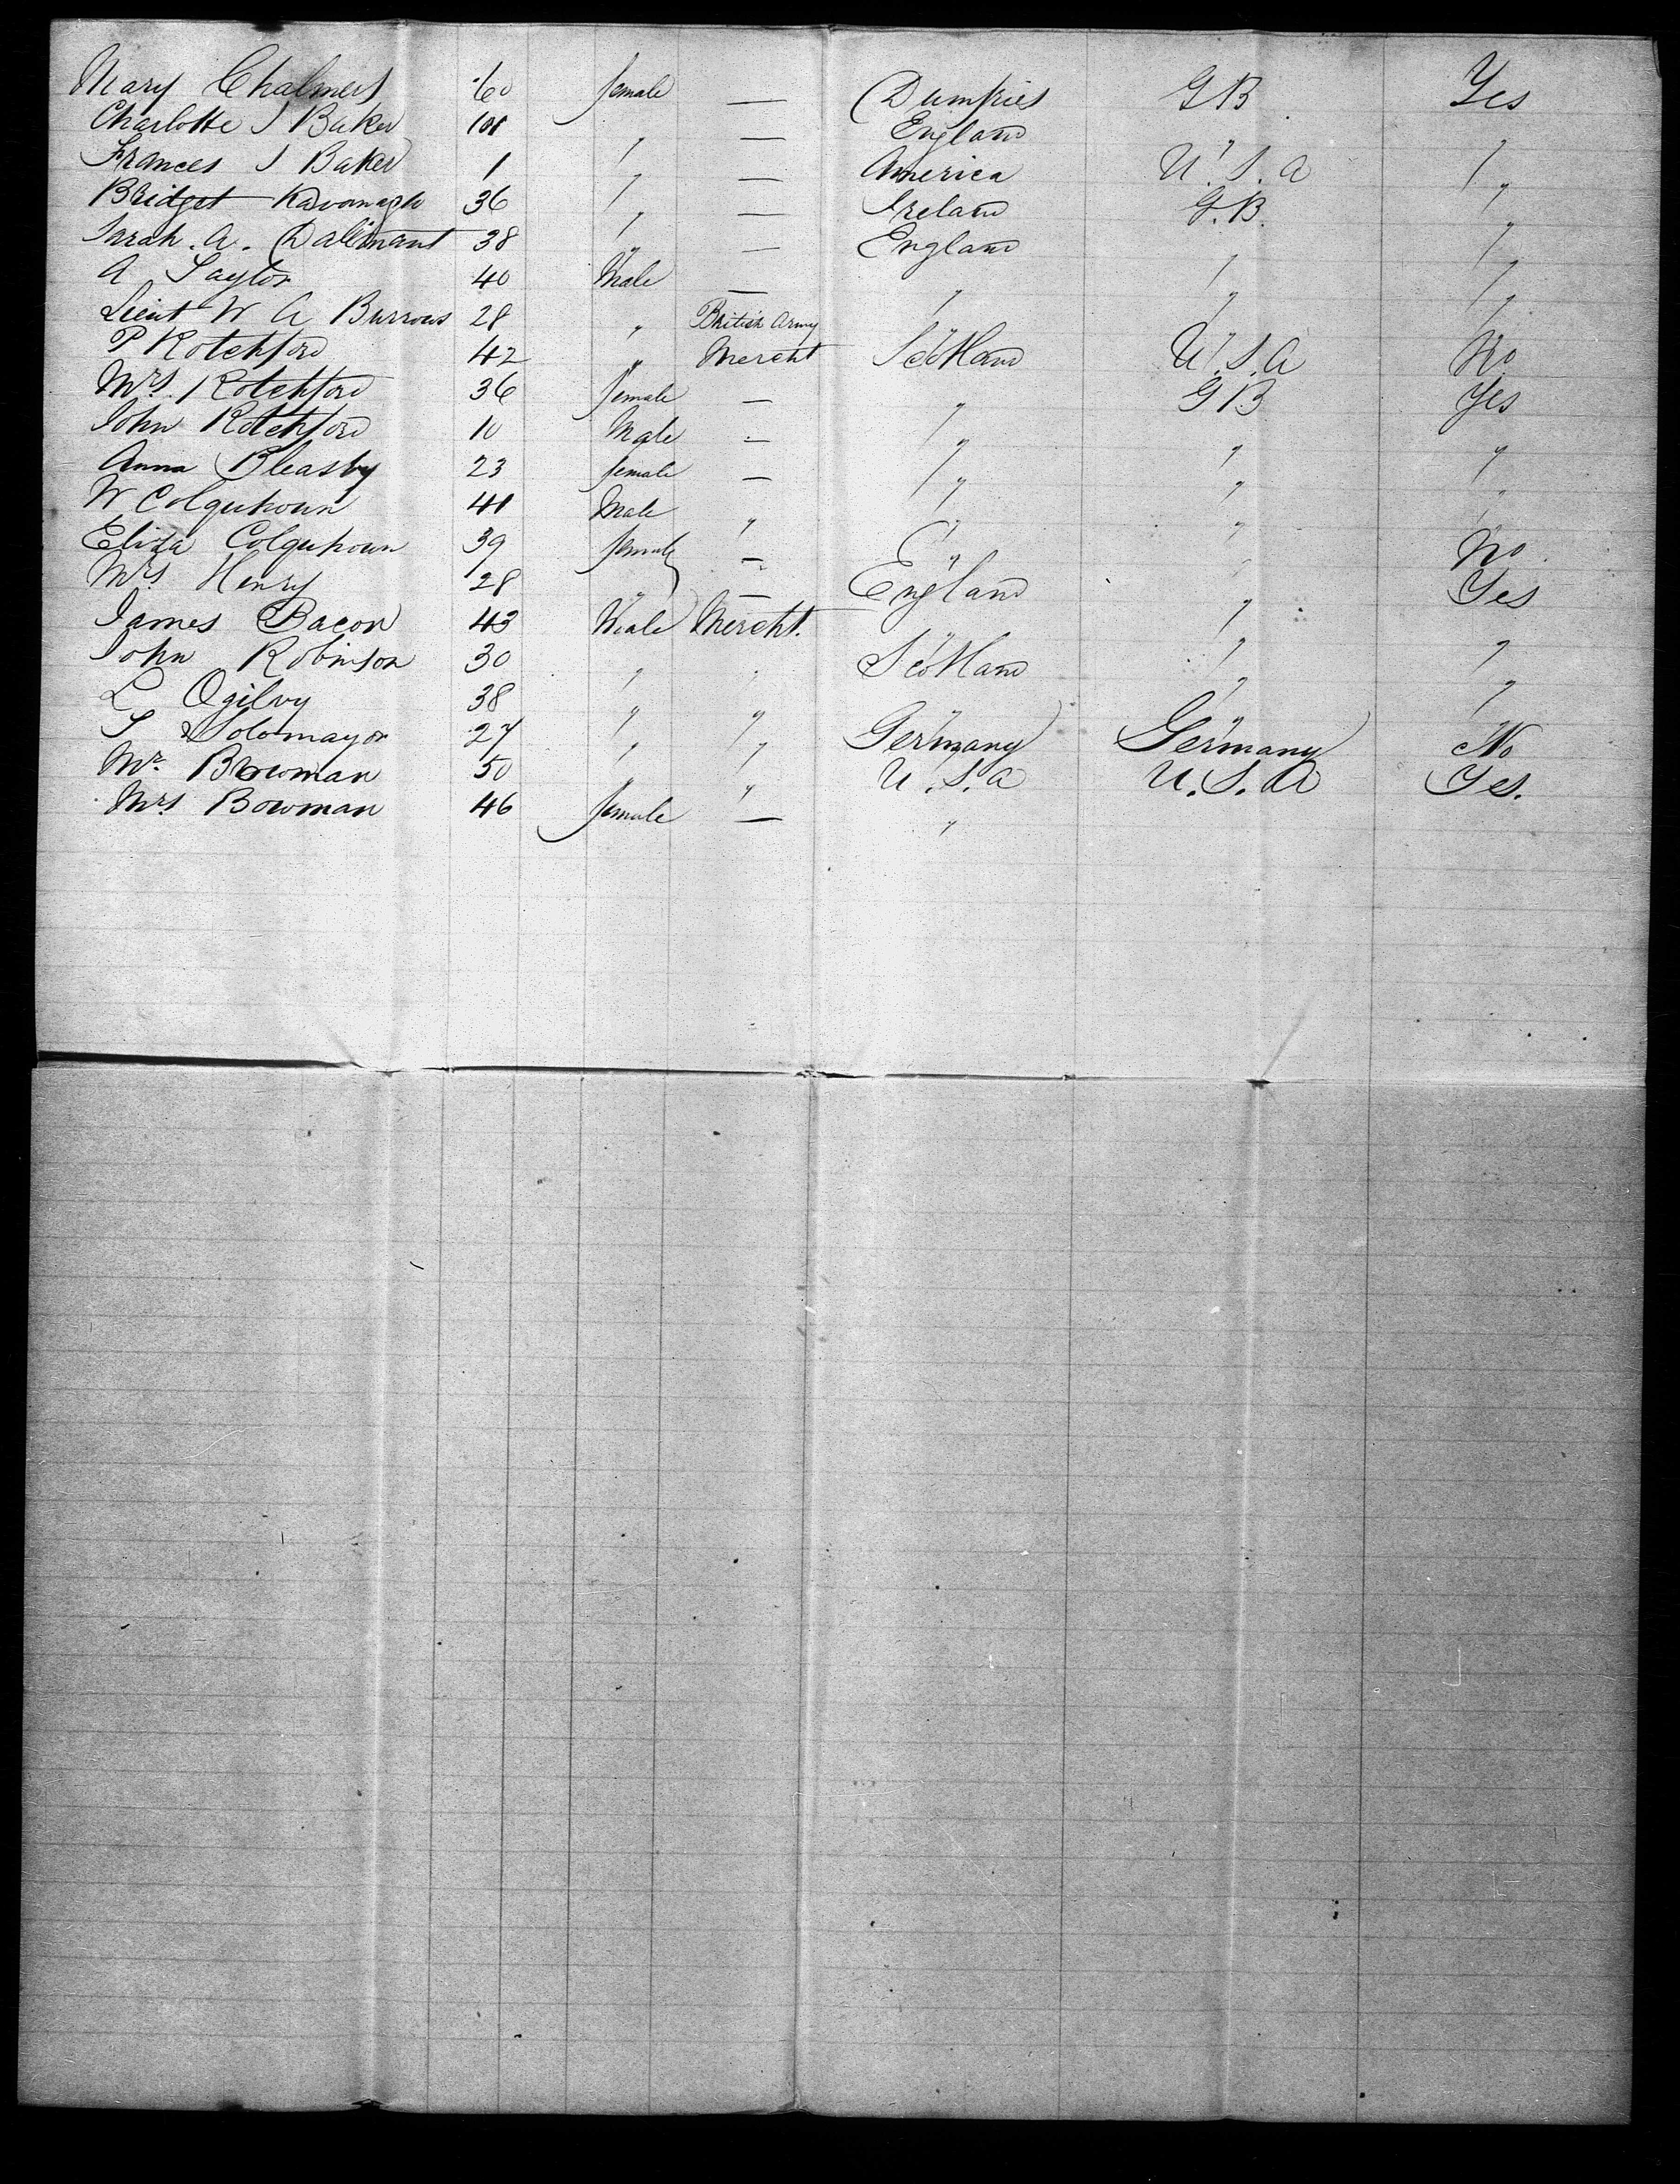 Mary Chalmers 60 female — Dumfries G B Yes
Charlotte J Baker 101 " — England " "
Frances J Baker 1 " — America U.S.A "
Bridget Kavanagh 36 " — Ireland G.B. "
Sarah. A. Dallimant 38 " — England " "
A Taylor 40 Male — " " "
Lieut W A Burrows 28 " British Army " " "
P Rotchford 42 " Mercht Scotland U.S.A No
Mrs. Rotchford 36 female — " G B Yes
John Rotchford 10 Male — " " "
Anna Bleasby 23 female — " " "
W Colquhoun 41 Male " " "
Eliza Colquhoun 39 female — " " No
Mrs Henry 28 " — England " Yes
James Bacon 43 Male Mercht. " " "
John Robinson 30 " " Scotland " "
L Ogilvy 38 " " " " "
S Solomayor 27 " " Germany Germany No
Mr. Bowman 50 " " U.S.A U.S.A Yes.
Mrs Bowman 46 female — "